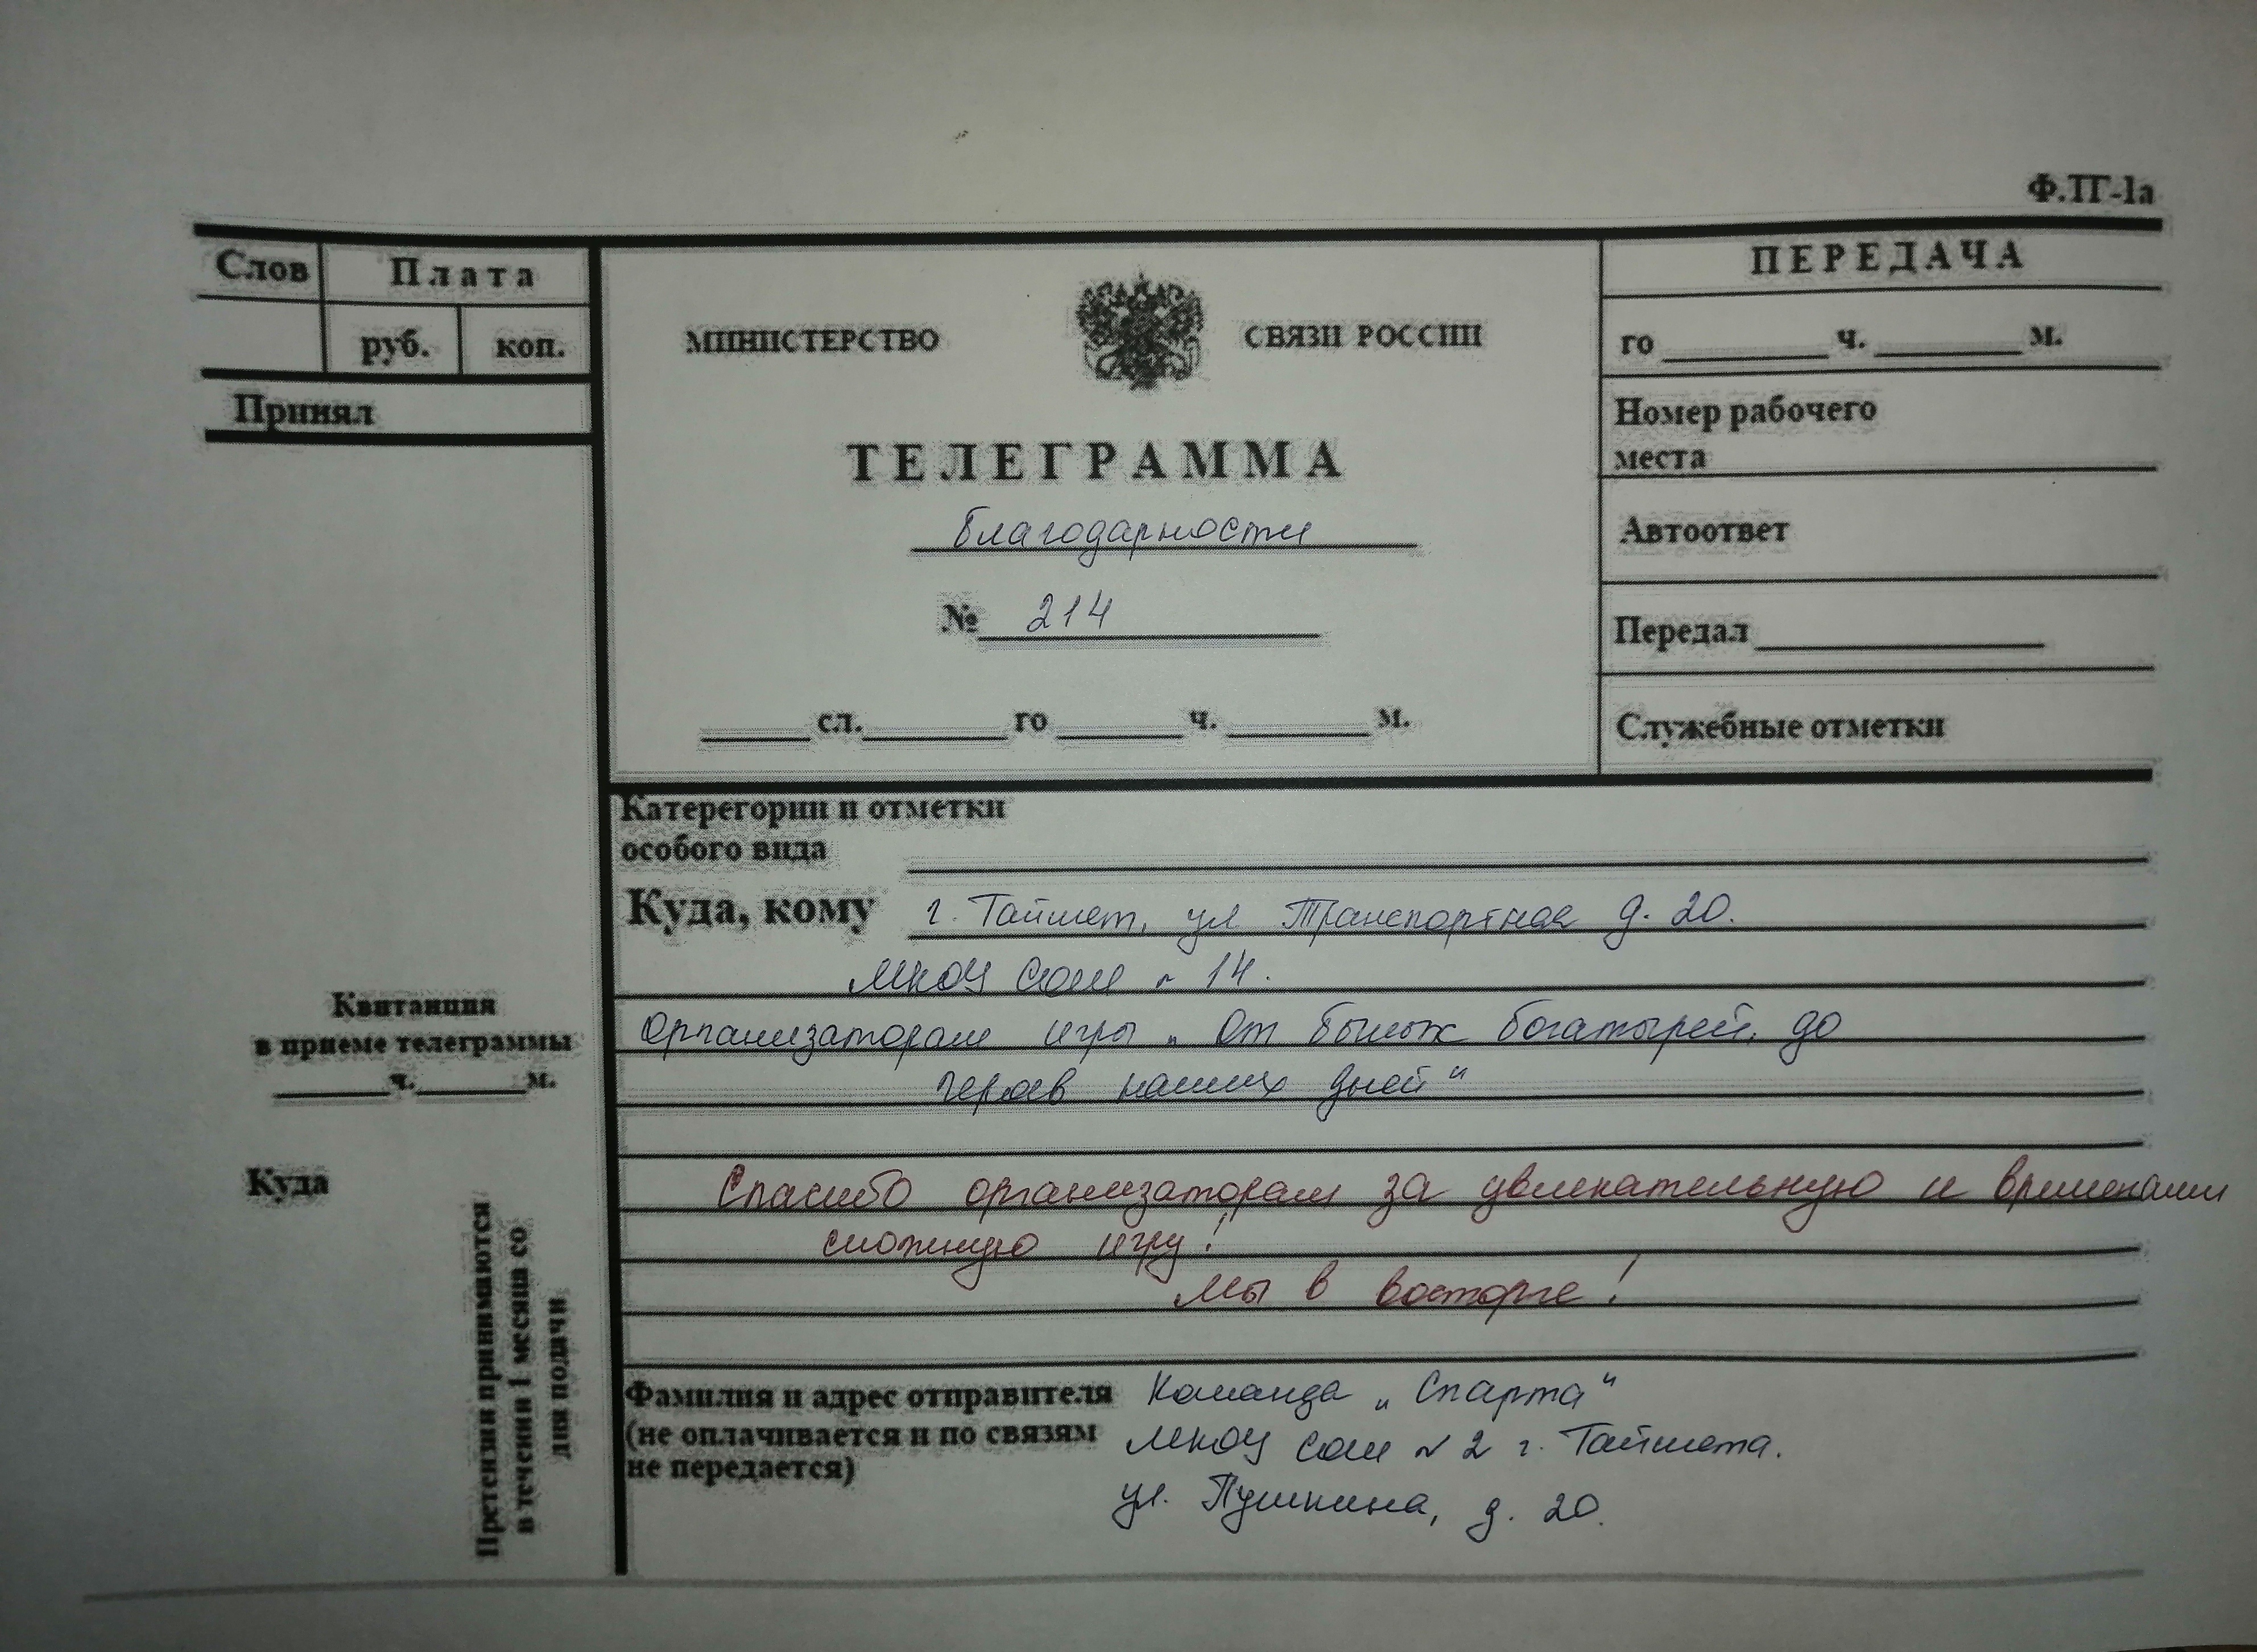 Ф.ТГ-1а
Слов
Плата
руб.
коп.
Принял
МИНИСТЕРСТВО
СВЯЗИ РОССИИ
ТЕЛЕГРАММА
благодарности
№ 214
сл. го ч. м.
ПЕРЕДАЧА
го ч. м.
Номер рабочего
места
Автоответ
Передал
Служебные отметки
Катерегории и отметки
особого вида
Куда, кому г. Тайшет, ул Транспортная д. 20.
МКОУ СОШ № 14.
организаторам игры „От былых богатырей, до
героев наших дней“
Спасибо организаторам за увлекательную и временами
сложную игру!
Мы в восторге!
Фамилия и адрес отправителя Команда „Спарта“
(не оплачивается и по связям МКОУ СОШ № 2 г. Тайшета.
не передается)
ул. Пушкина, д. 20.
Квитанция
в приеме телеграммы
ч. м.
Куда
Претензии принимаются
в течении 1 месяца со
дня подачи